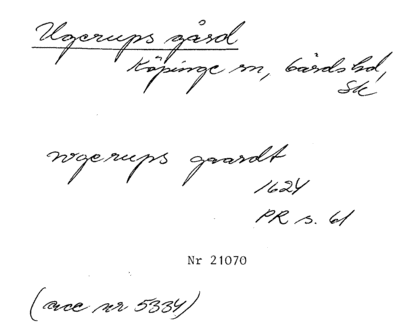 Ugerups gård
Köpinge sn, Gärds hd,
Sk
wgerups gaardt
1624
PR s. 61
Nr 21070
(acc nr 5334)